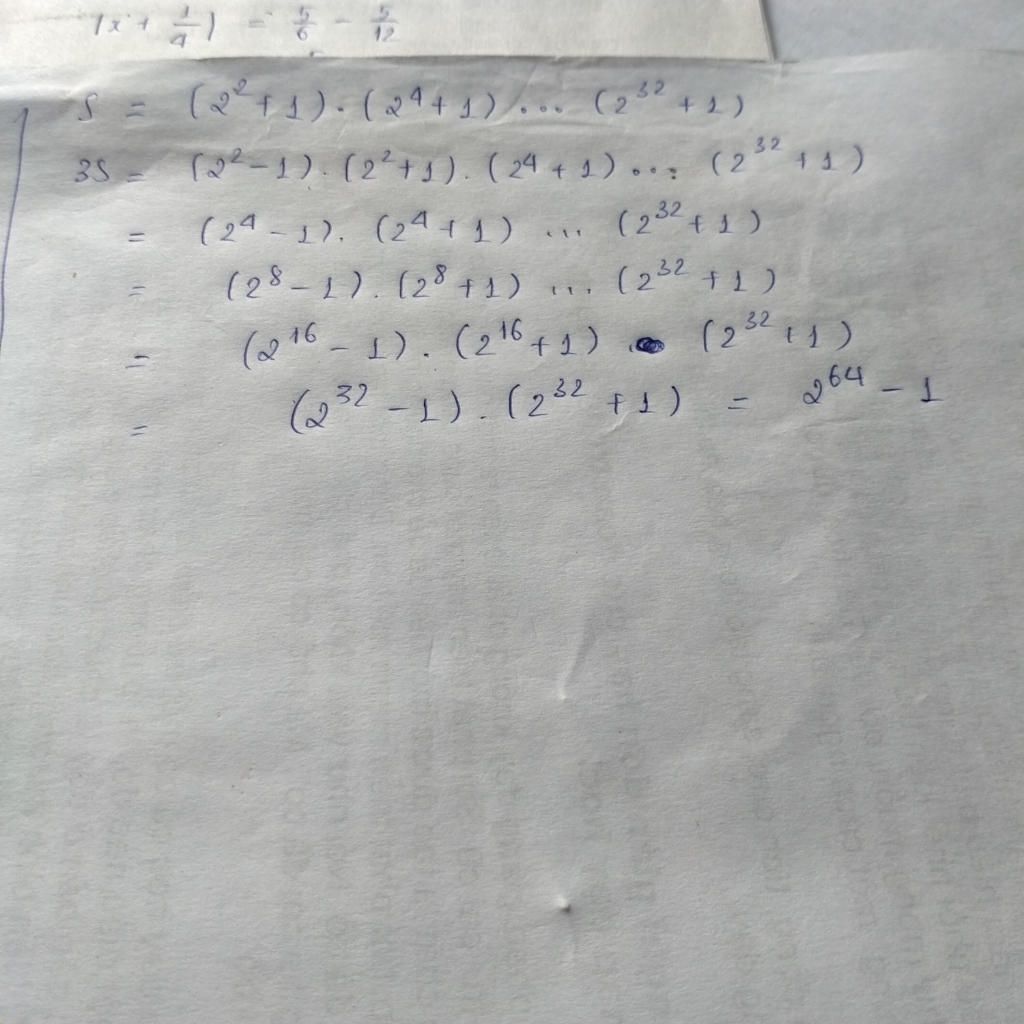 |x + 1/4| = 5/6 - 5/12
S = (2² + 1) . (2⁴ + 1) ... (2³² + 1)
3S = (2² - 1) . (2² + 1) . (2⁴ + 1) ... (2³² + 1)
= (2⁴ - 1) . (2⁴ + 1) ... (2³² + 1)
= (2⁸ - 1) . (2⁸ + 1) ... (2³² + 1)
= (2¹⁶ - 1) . (2¹⁶ + 1) . (2³² + 1)
= (2³² - 1) . (2³² + 1) = 2⁶⁴ - 1